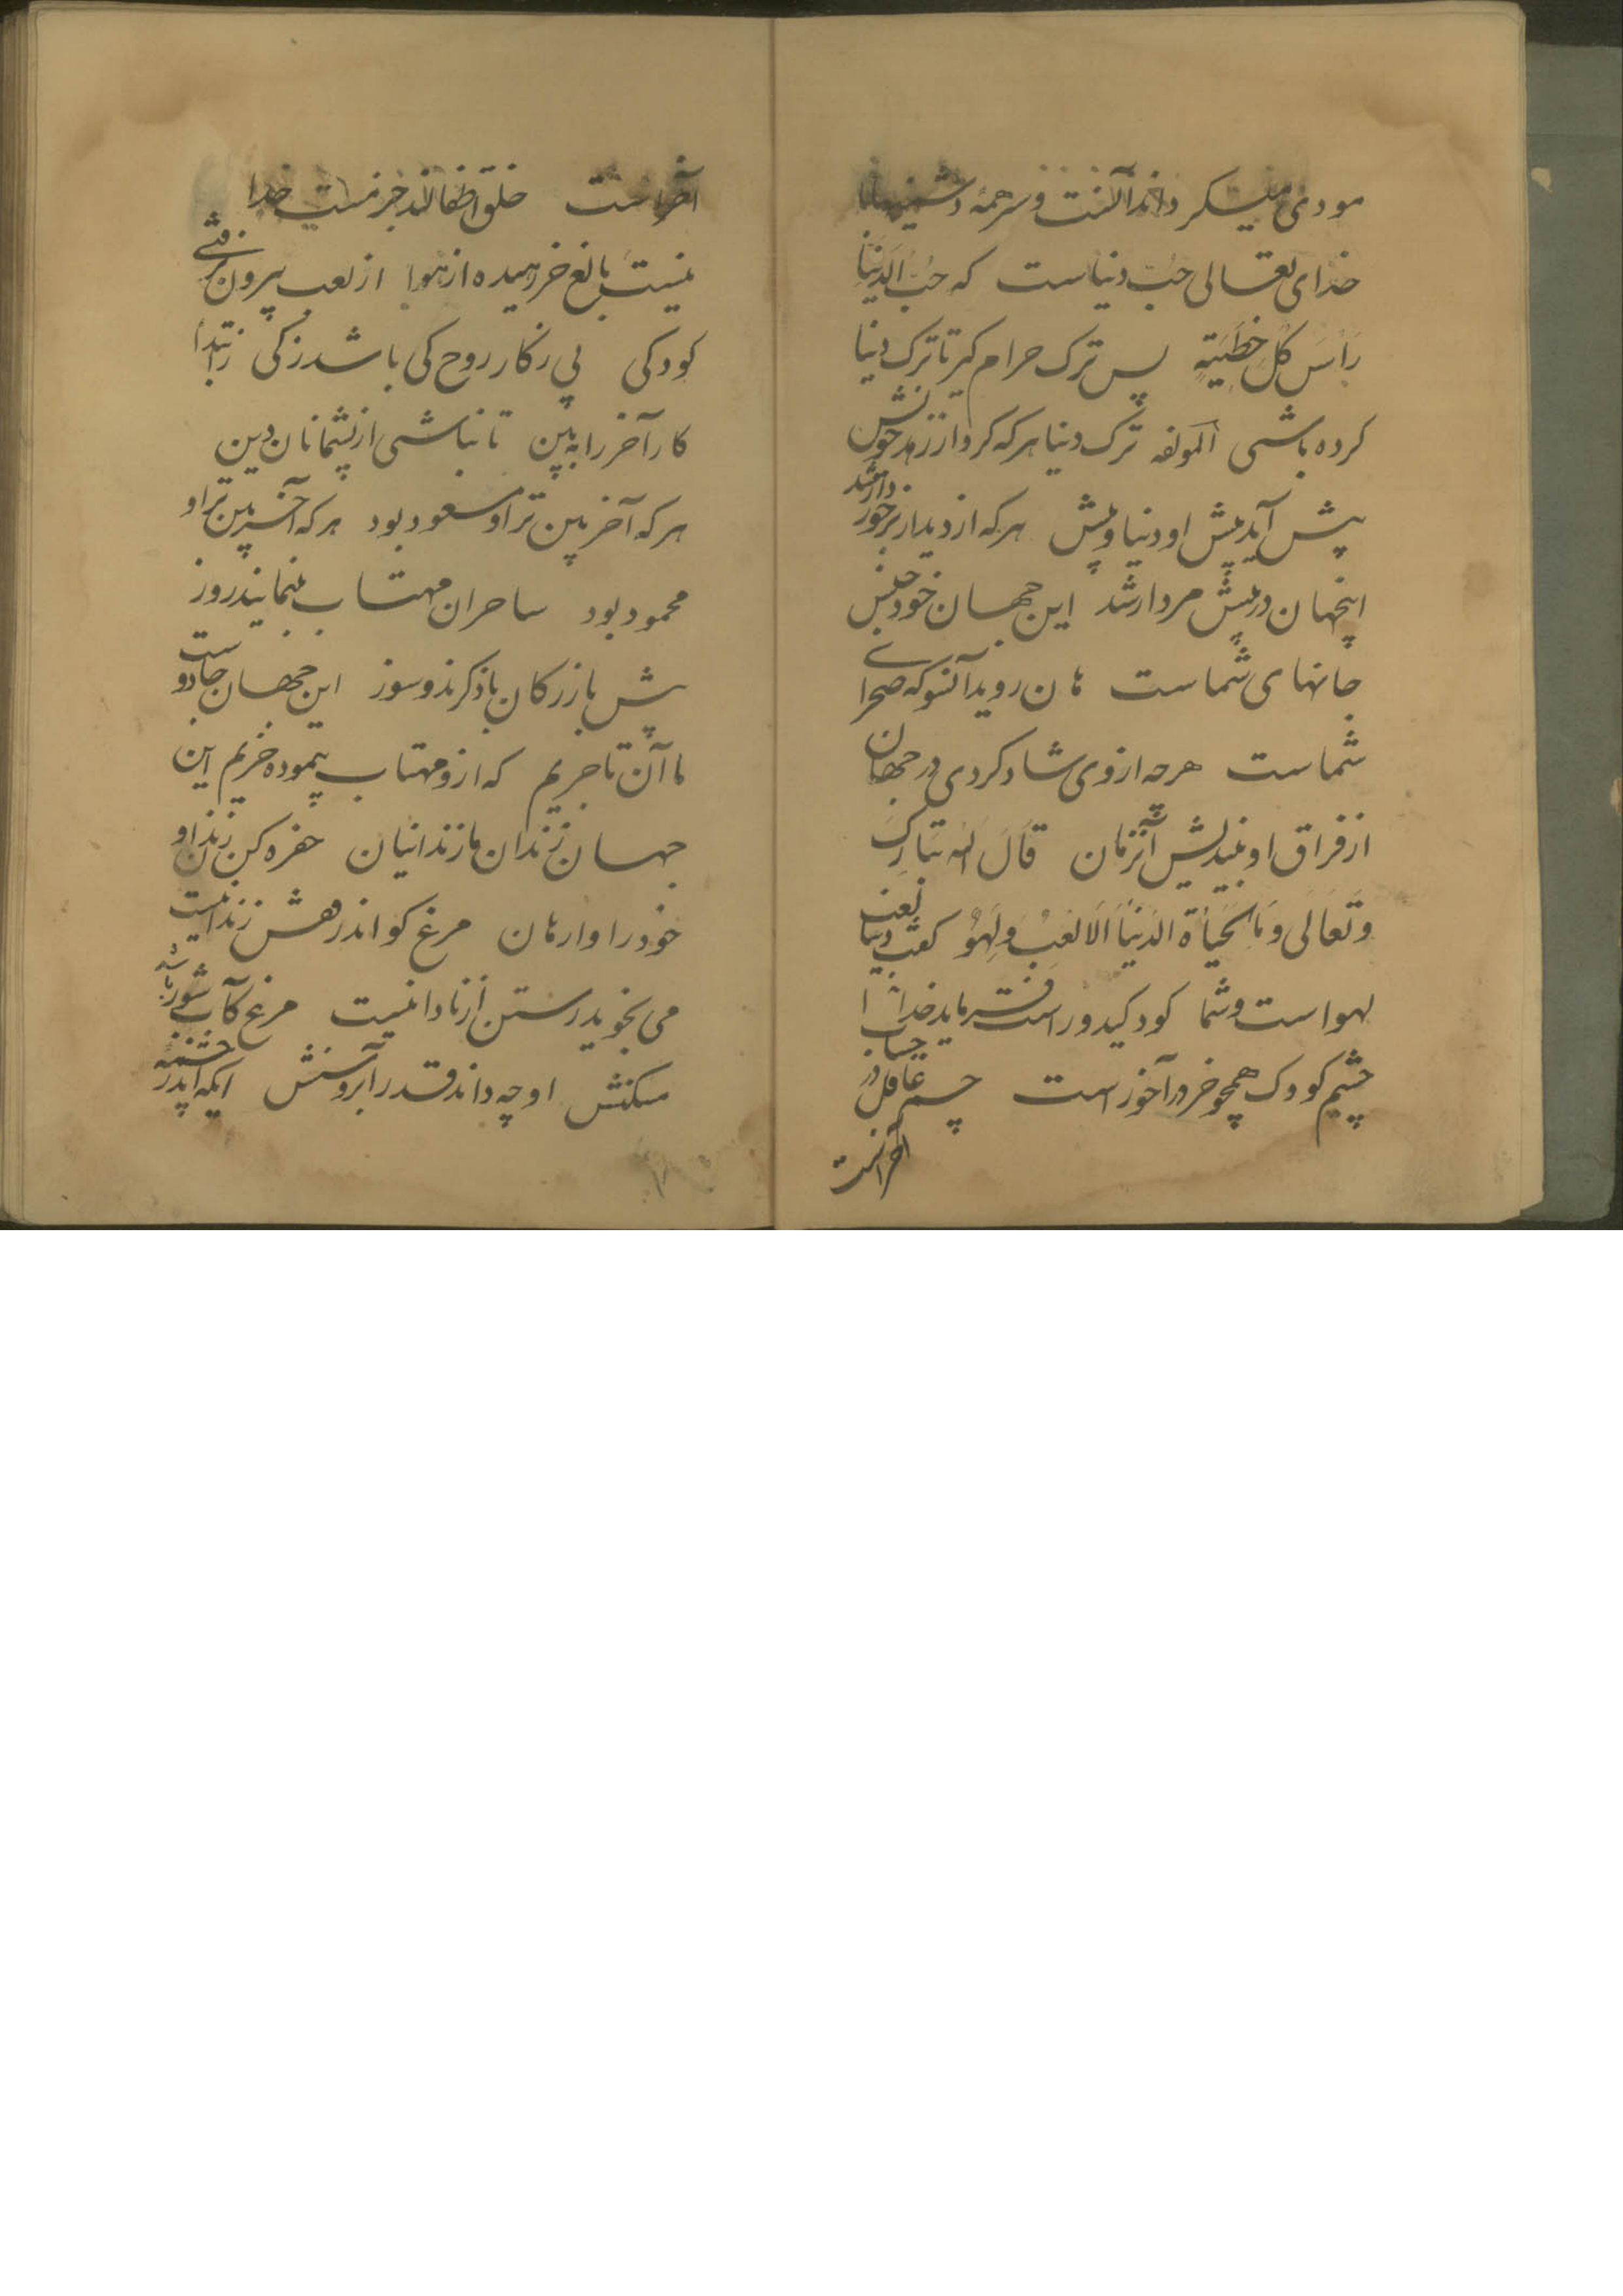 خدای تعالی حب دنیاست که حُبُ الدُنیَا
رَأسَ کُلِ خَطَیَتِهِ پس ترک حرام گیر تا ترک دنیا
کرده باشی المولفه ترک دنیا هرکه کرد از زهد خویش
پیش آید پیش او دنیا و پیش هرکه از دیدار برخوردار شد
اینجهان در پیش مردار شد این جهان خود حبس
جانهای شماست هان روید آنسو که صحرای
شماست هرچه از وی شاد کردی در جهان
از فراق او بیندیش آنزمان قَالَ الله تَبَارکَ
وَ تَعَالَی وَ مَا الحَیَاة الدُنیَا اِلَا لَعِبُ وَ لَهوُ گفت دنیا لعب
لهو است و شما کودکید و راست فرماید خدا
چشم کودک همچو خر در آخور است چشم عاقل در حساب
آخر است
آخر است خلق اطفالند جز مست خدا
نیست بالغ جز رهیده از هوا از لعب بیرون نرفتی
کودکی بی زکار روح کی باشد زکی ز ابتدا
کار آخر را به بین تا نباشی از پشیمانان دین
هرکه آخر بین تر او مسعود بود هرکه آخر بین تر او
محمود بود ساحران مهتاب بنمایند روز
پیش بازرگان باذکرند و سوز این جهان جادوست
ما آن تاجریم که ازو مهتاب پیموده خریم این
جهان زندان ما زندانیان حفره کن زندان و
خود را وارهان مرغ کو اندر قفس زندانیست
می بخوید رستن از نادانیست مرغ کآب شور باشد
مسکنش او چه داند قدر آب روشنش ایکه اندر چشمه